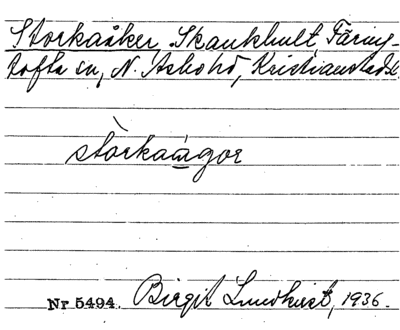 Storkaåker, Skankhult Färing-
tofta sn, N. Åsbohd, Kristianstads l.
stòrkaågor
Nr 5494. Birgit Lundkvist, 1936.